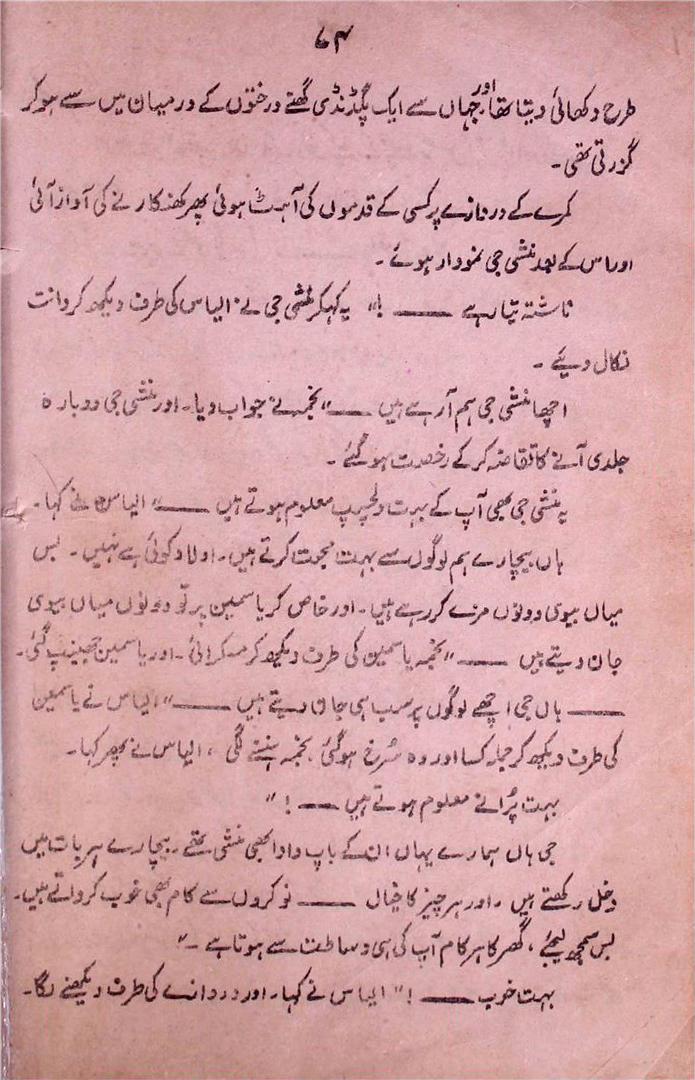 ۷۴
طرح دکھائی دیتا تھا اور جہاں سے ایک پگڈنڈی گھنے درختوں کے درمیان میں سے ہو کر
گزرتی تھی۔
کمرے کے دروازے پر کسی کے قدموں کی آہٹ ہوئی پھر کھنکارنے کی آواز آئی
اور اس کے بعد منشی جی نمودار ہوئے۔
ناشتہ تیار ہے ——— !" یہ کہکر منشی جی نے الیاس کی طرف دیکھ کر دانت
نکال دیئے۔
اچھا منشی جی ہم آ رہے ہیں ———" نجمہ نے جواب دیا۔ اور منشی جی دوبارہ
جلدی آنے کا تقاضہ کر کے رخصت ہو گئے۔
یہ منشی جی بھی آپ کے بہت دلچسپ معلوم ہوتے ہیں ———" الیاس نے کہا۔
ہاں بیچارے ہم لوگوں سے بہت محبت کرتے ہیں۔ اولاد کوئی ہے نہیں۔ بس
میاں بیوی دونوں مزے کر رہے ہیں۔ اور خاص کر یاسمین پر تو دونوں میاں بیوی
جان دیتے ہیں ———" نجمہ یاسمین کی طرف دیکھ کر مسکرائی۔ اور یاسمین جھینپ گئی۔
——— ہاں جی اچھے لوگوں پر سب ہی جان دیتے ہیں ———" الیاس نے یاسمین
کی طرف دیکھ کر جملہ کسا اور وہ سُرخ ہو گئی نجمہ ہنسنے لگی ، الیاس نے پھر کہا۔
بہت پُرانے معلوم ہوتے ہیں ——— ! "
جی ہاں ہمارے یہاں ان کے باپ دادا بھی منشی تھے۔ بیچارے ہر بات میں
دخل رکھتے ہیں۔ اور ہر چیز کا خیال ——— نوکروں سے کام بھی خوب کرواتے ہیں۔
بس سمجھ لیجئے ، گھر کا ہر کام آپ کی ہی وساطت سے ہوتا ہے۔"
بہت خوب ——— !" الیاس نے کہا۔ اور دروازے کی طرف دیکھنے لگا۔